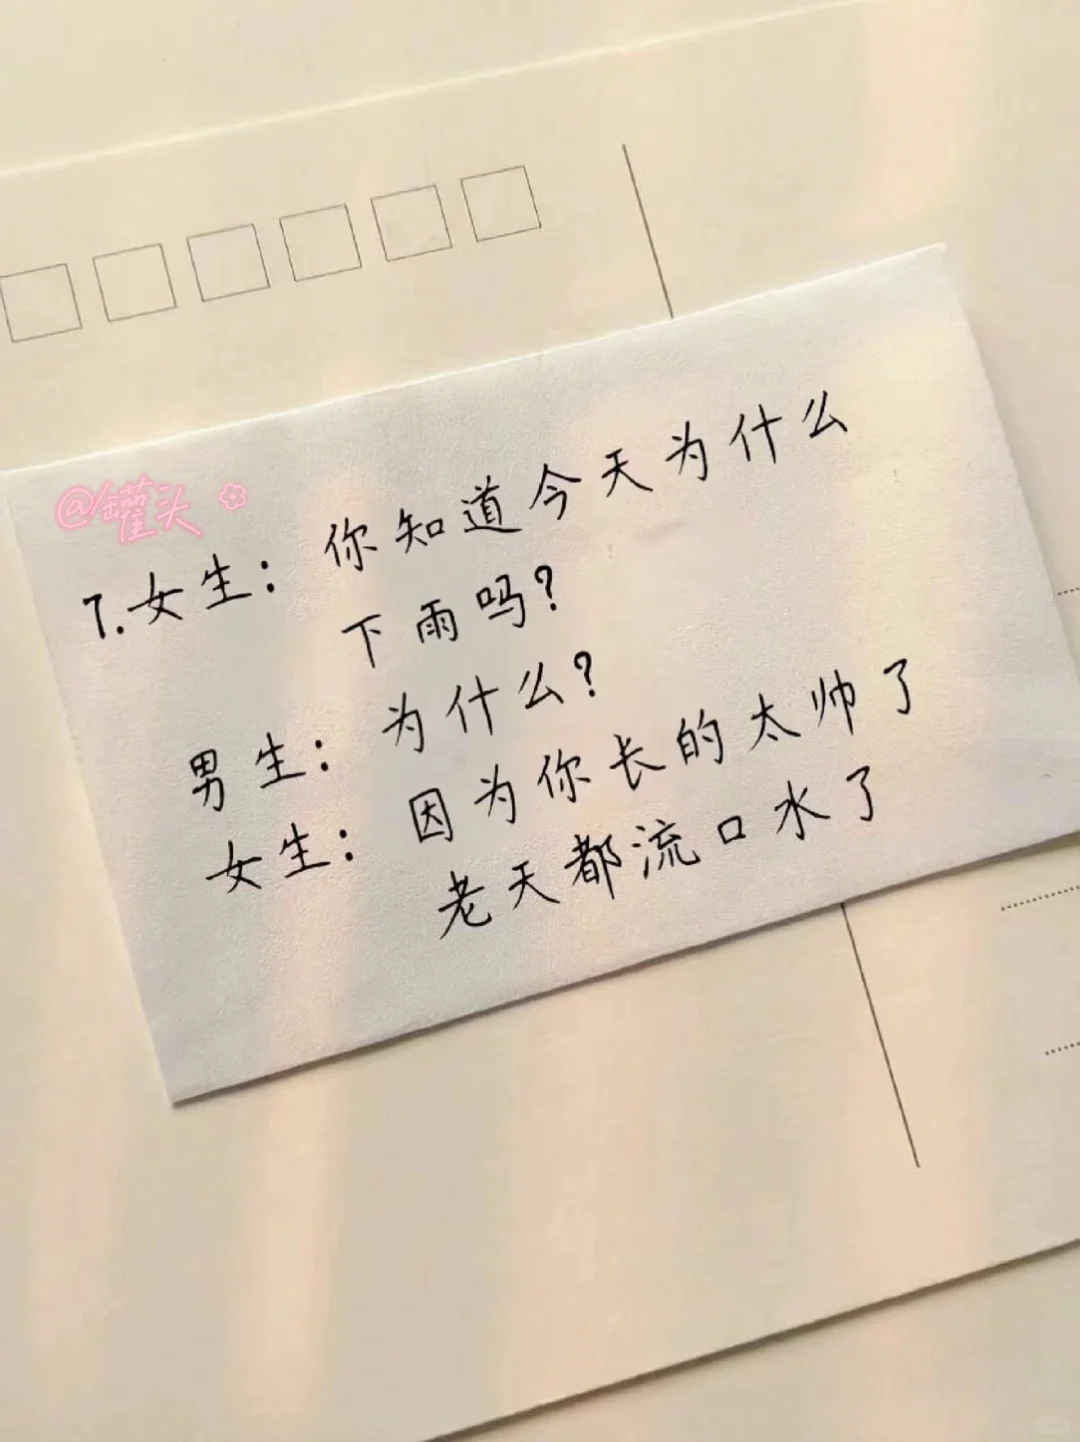 @罐头
7.女生：你知道今天为什么
下雨吗？
男生：为什么？
女生：因为你长的太帅了
老天都流口水了